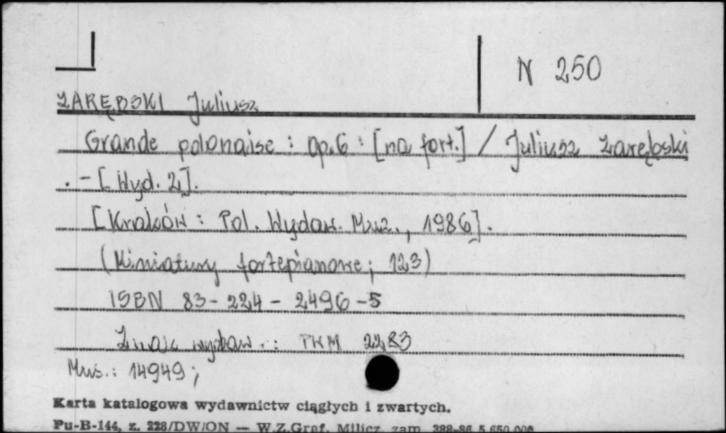 N 250
ZARĘBSKI Juliusz
Grande polonaise : op. 6 : [na fort.] / Juliusz Zarębski
. - [Wyd. 2].
[Kraków : Pol. Wydaw. Muz., 1986].
(Miniatury fortepianowe ; 123)
ISBN 83-224-2496-5
Znak wydaw. : PWM 2283
Mus.: 14949;
Karta katalogowa wydawnictw ciągłych i zwartych.
Pu-B-144, z. 228/DW/ON — W.Z.Graf. Milicz zam. 388-86 5.650.000